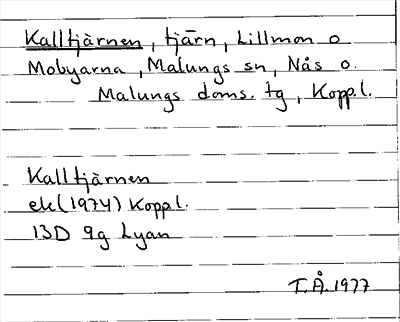 Kalltjärnen, tjärn, Lillmon o
Mobyarna, Malungs sn, Nås o.
Malungs doms. tg, Koppl.
Kalltjärnen
ek (1974) Koppl.
13D 9g Lyan
T.Å. 1977